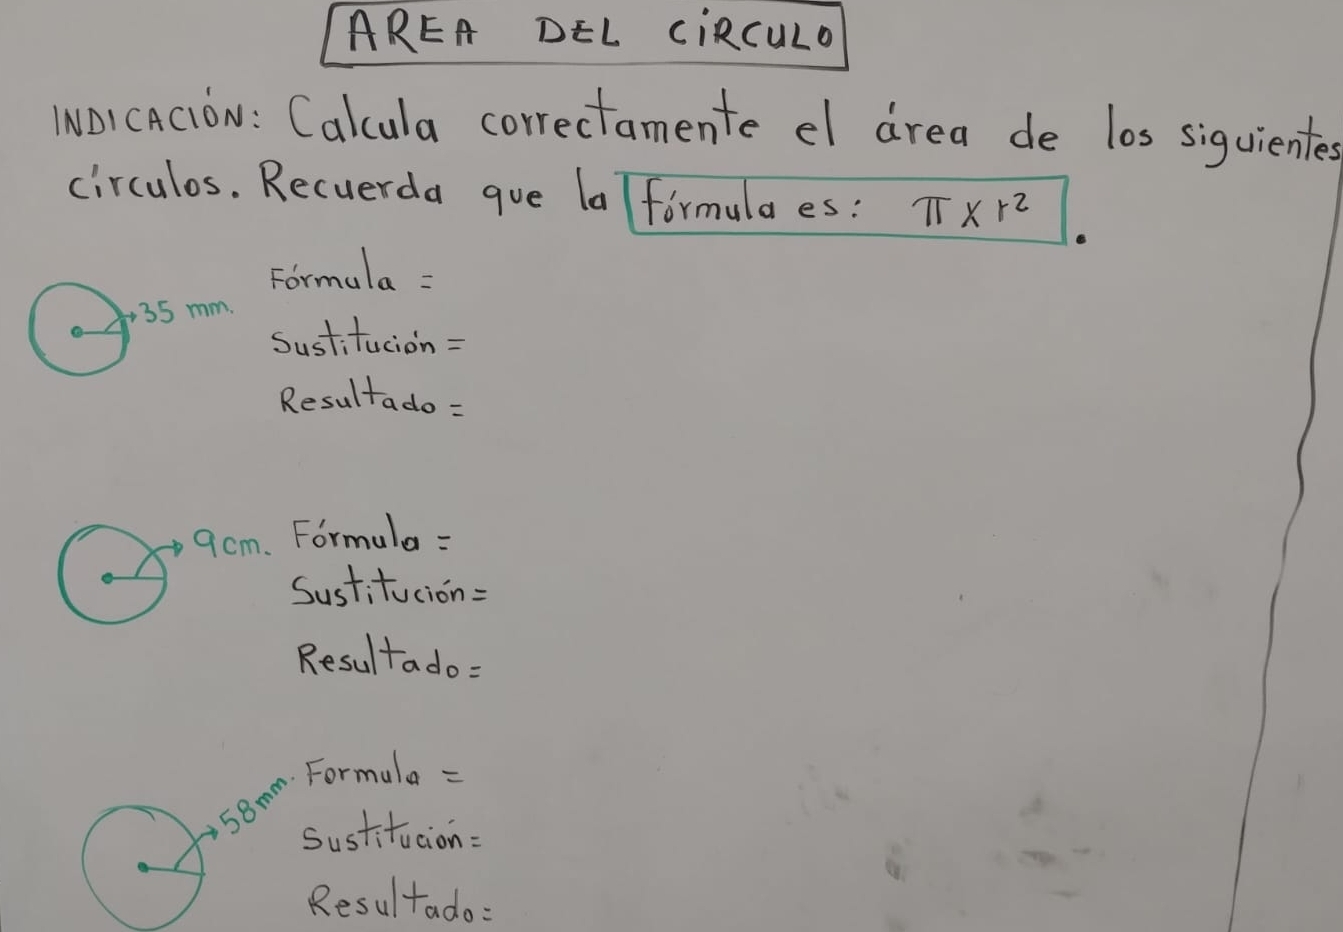 AREA DEL CÍRCULO
INDICACIÓN: Calcula correctamente el área de los siguientes
círculos. Recuerda que la fórmula es: π x r².
35 mm.
Fórmula =
Sustitución =
Resultado =
9 cm.
Fórmula =
Sustitución =
Resultado =
58 mm.
Formula =
Sustitución =
Resultado =